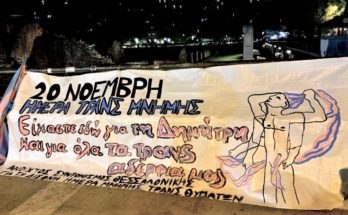 20 ΝΟΕΜΒΡΗ
ΗΜΕΡΑ ΤΡΑΝΣ ΜΝΗΜΗΣ
Είμαστε εδώ για τη Δημήτρη
και για όλα τα τρανς
αδέρφια μας
ΑΝΟΙΧΤΟΣ ΣΥΝΤΟΝΙΣΜΟΣ ΘΕΣΣΑΛΟΝΙΚΗΣ
ΗΜΕΡΑ ΜΝΗΜΗΣ ΤΡΑΝΣ ΘΥΜΑΤΩΝ